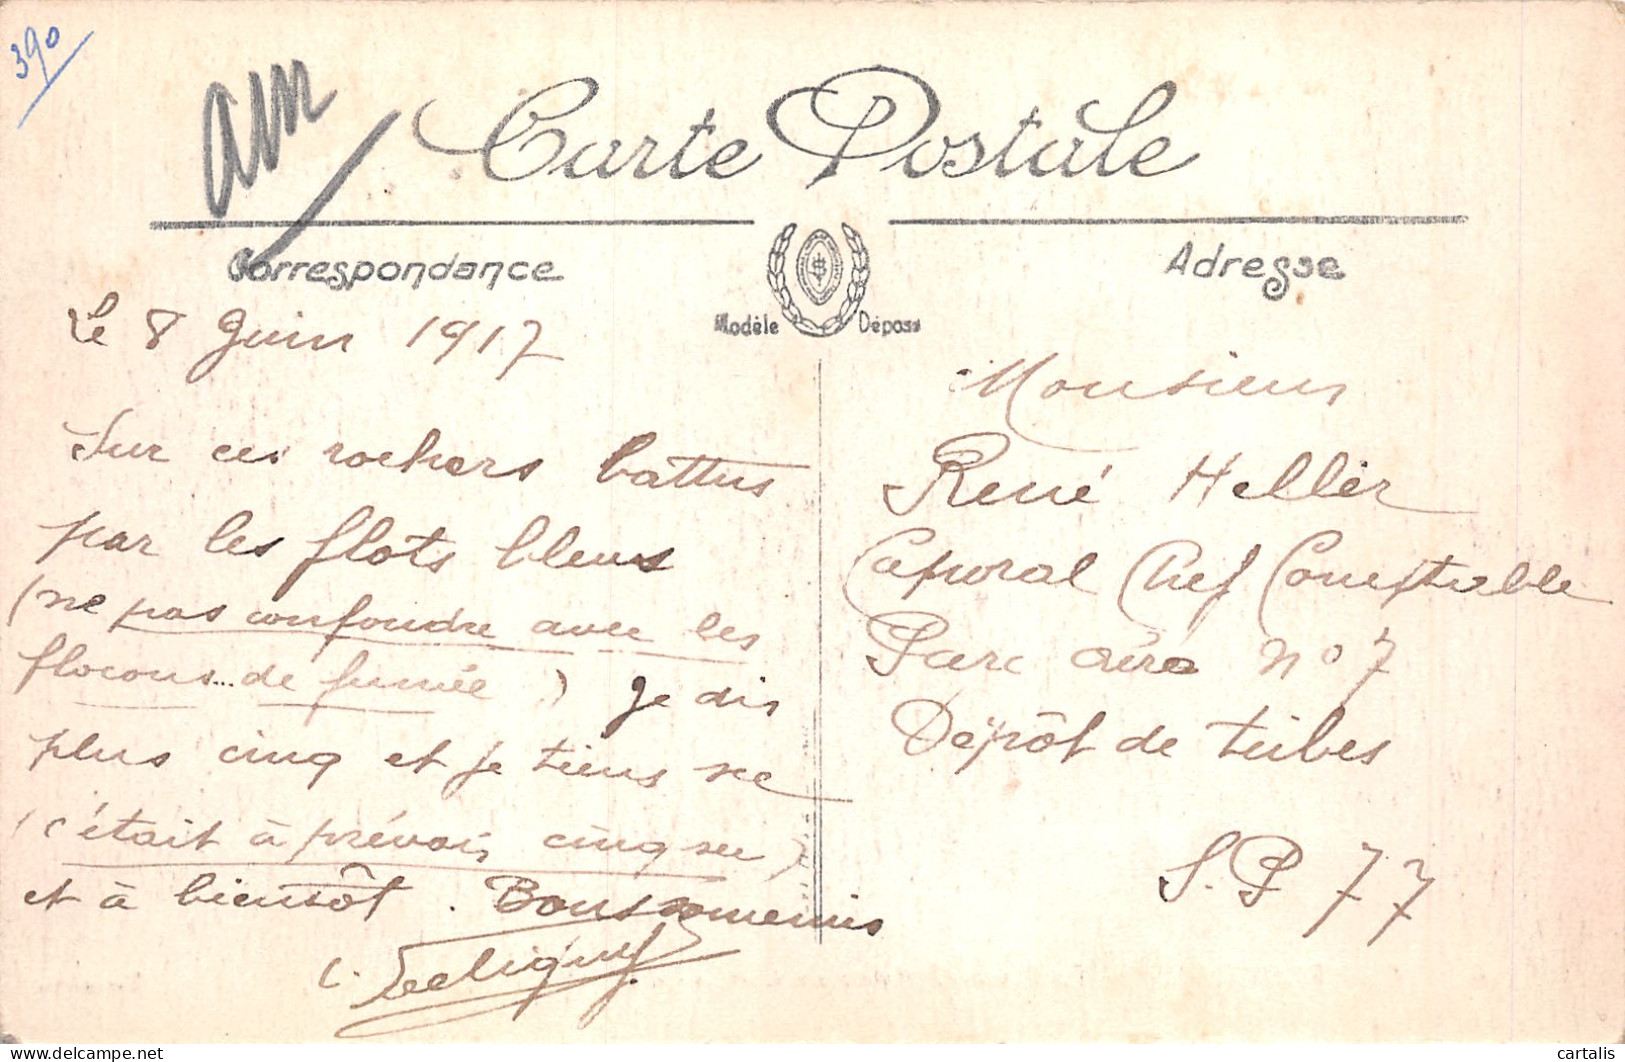 390
am
Carte Postale
Correspondance
Adresse
Modèle Déposé
Le 8 Juin 1917
Sur ces rochers battus
par les flots bleus
(ne pas confondre avec les
flocons... de fumée) Je dis
plus cinq et je tiens
(c'était à prévoir, cinq)
et à bientôt.
Monsieur
René Hellier
Caporal Chef Comptable
Parc aéro No 7
Dépôt de tubes
S.P 77
cartalis